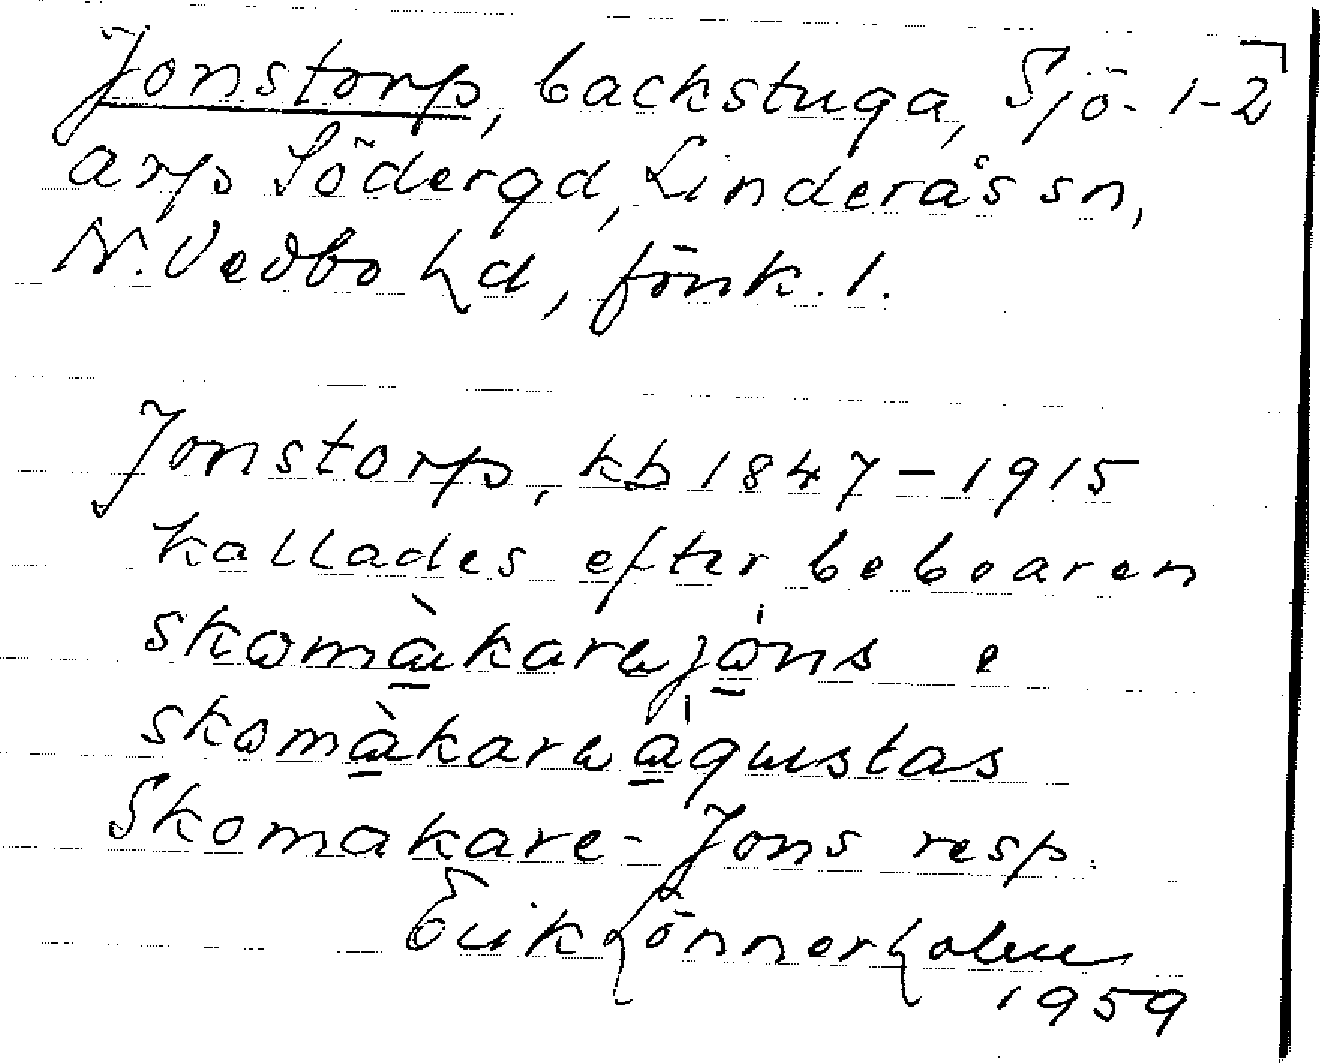 Jonstorp, backstuga, Sjö- 1-2
arp Södergd, Linderås sn,
N. Vedbo hd, fönk. 1.
Jonstorp, kb 1847-1915
kallades efter beboaren
skomàkarejóns e
skomàkareágustas
Skomakare-Jons resp.
Erik Lönnerholm
1959